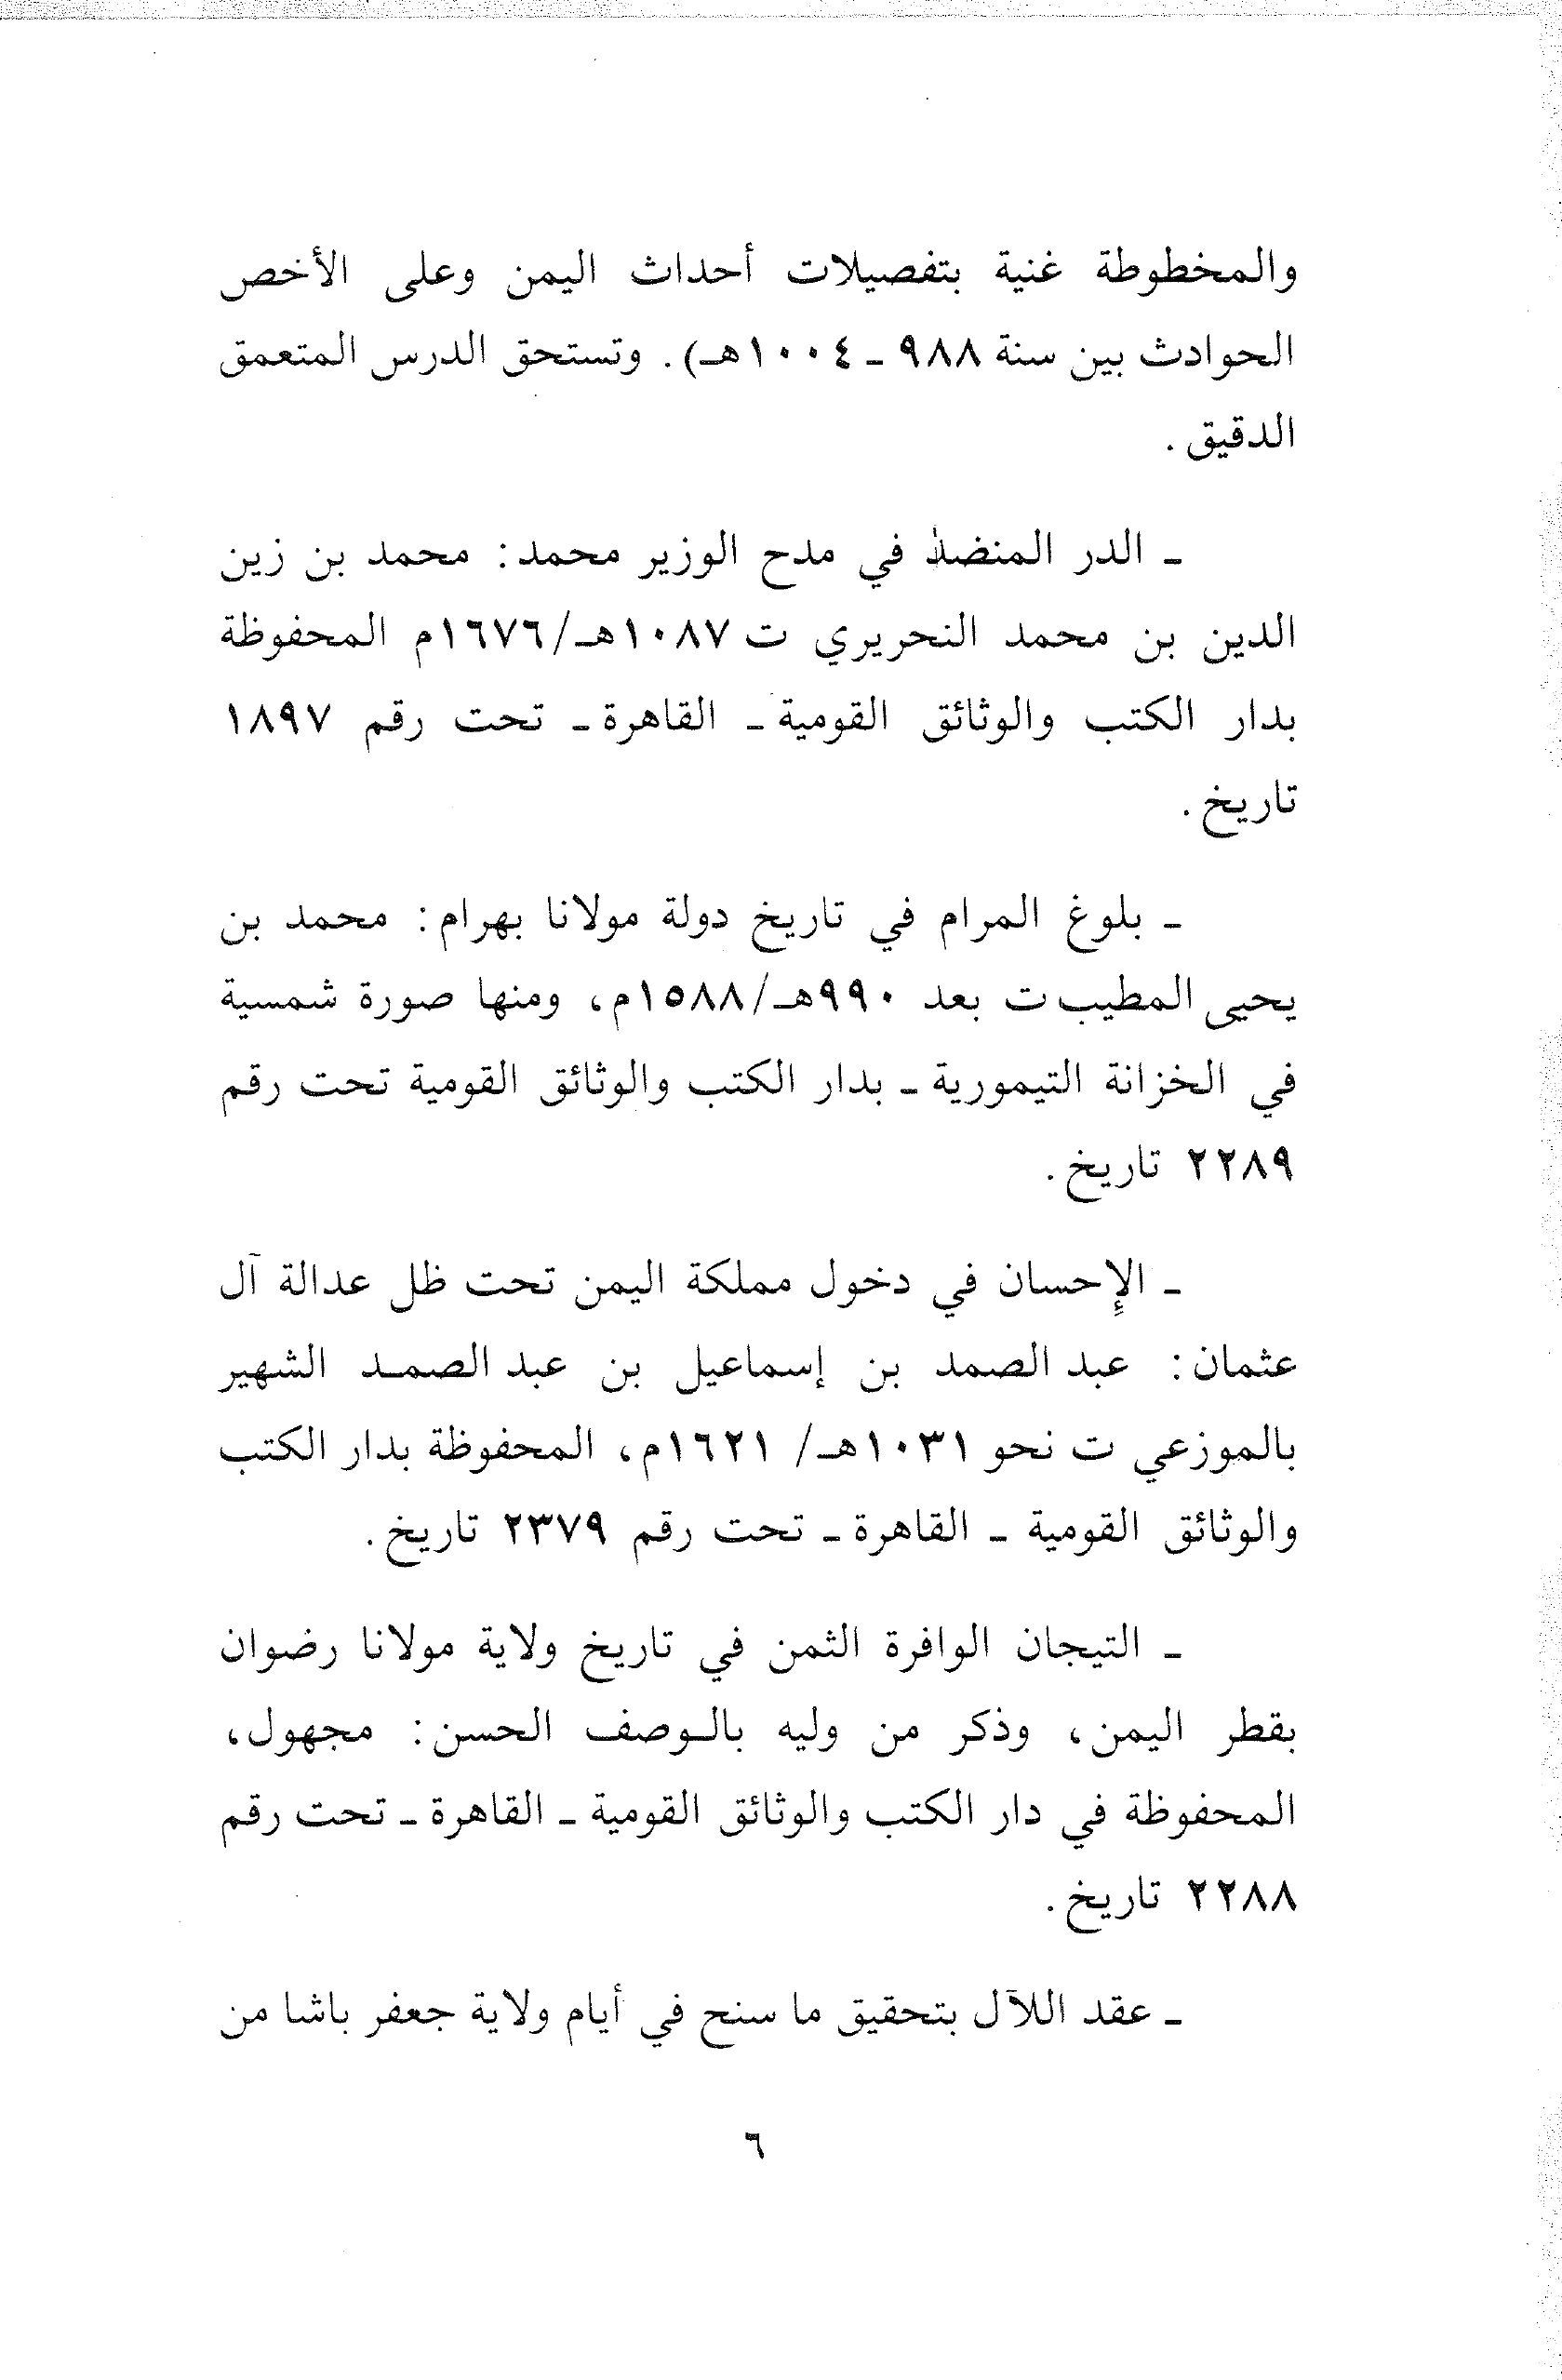 والمخطوطة غنية بتفصيلات أحداث اليمن وعلى الأخص
الحوادث بين سنة ٩٨٨ ـ ١٠٠٤هـ). وتستحق الدرس المتعمق
الدقيق.
ـ الدر المنضد في مدح الوزير محمد: محمد بن زين
الدين بن محمد النحريري ت ١٠٨٧هـ/١٦٧٦م المحفوظة
بدار الكتب والوثائق القومية ـ القاهرة ـ تحت رقم ١٨٩٧
تاريخ.
ـ بلوغ المرام في تاريخ دولة مولانا بهرام: محمد بن
يحيى المطيب ت بعد ٩٩٠هـ/١٥٨٨م، ومنها صورة شمسية
في الخزانة التيمورية ـ بدار الكتب والوثائق القومية تحت رقم
٢٢٨٩ تاريخ.
ـ الإحسان في دخول مملكة اليمن تحت ظل عدالة آل
عثمان: عبد الصمد بن إسماعيل بن عبد الصمد الشهير
بالموزعي ت نحو ١٠٣١هـ/ ١٦٢١م، المحفوظة بدار الكتب
والوثائق القومية ـ القاهرة ـ تحت رقم ٢٣٧٩ تاريخ.
ـ التيجان الوافرة الثمن في تاريخ ولاية مولانا رضوان
بقطر اليمن، وذكر من وليه بالوصف الحسن: مجهول،
المحفوظة في دار الكتب والوثائق القومية ـ القاهرة ـ تحت رقم
٢٢٨٨ تاريخ.
ـ عقد اللآل بتحقيق ما سنح في أيام ولاية جعفر باشا من
٦